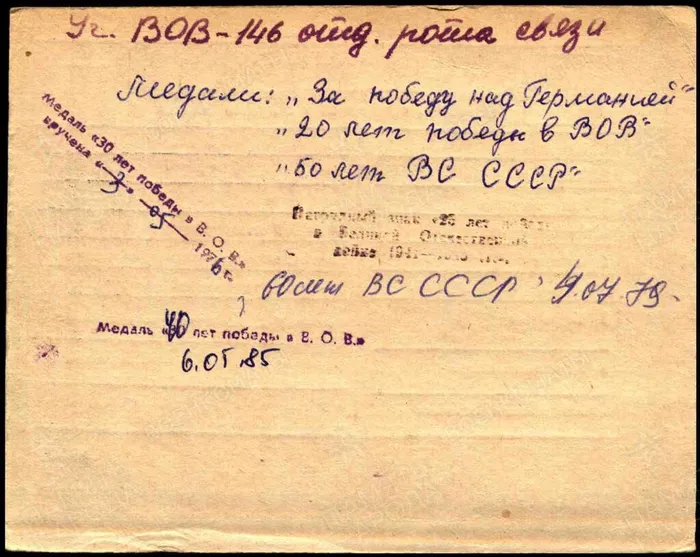 Уч. ВОВ-146 отд. рота связи
Медали: „За победу над Германией"
„20 лет победы в ВОВ"
„50 лет ВС СССР"
Медаль «30 лет победы в В. О. В.»
вручена «3» 05 1976 г.
Нагрудный знак «25 лет победы
в Великой Отечественной
войне 1941—1945 гг.»
60 лет ВС СССР 4.07.79.
Медаль «40 лет победы в В. О. В.»
6.05.85